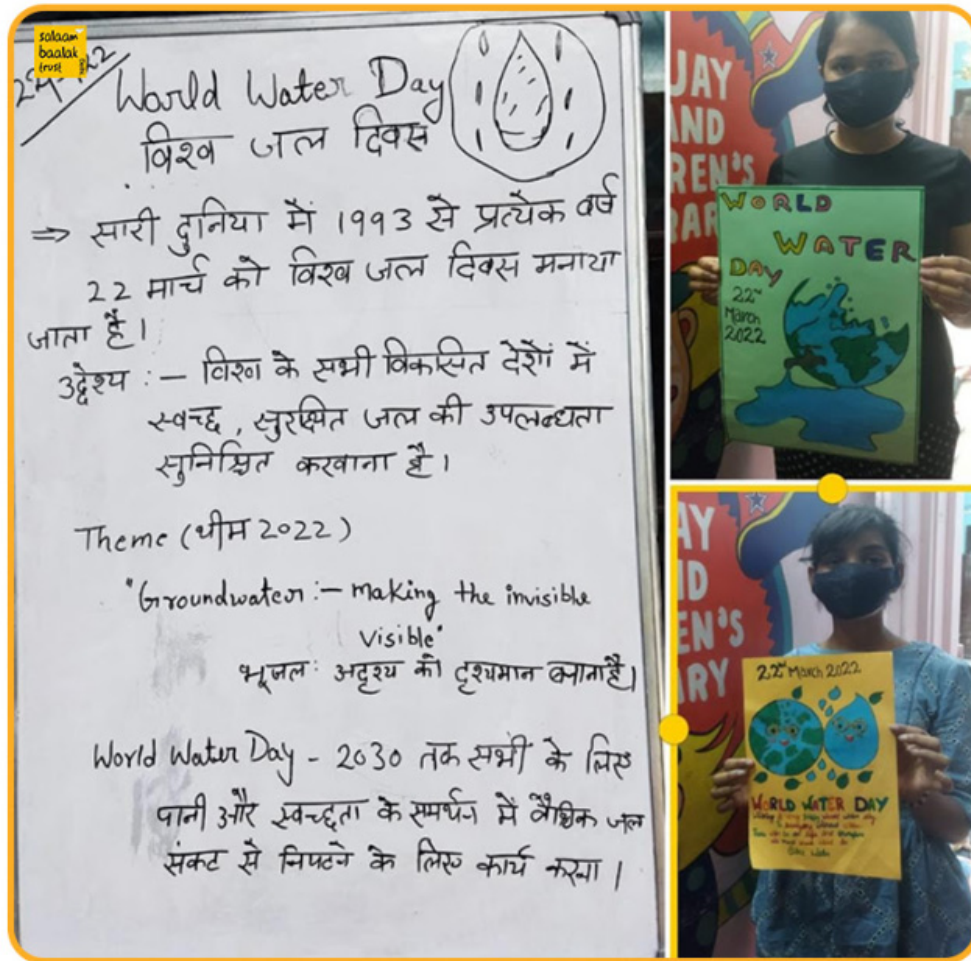 salaam
baalak
trust
World Water Day
विश्व जल दिवस
⇒ सारी दुनिया में 1993 से प्रत्येक वर्ष
22 मार्च को विश्व जल दिवस मनाया
जाता है।
उद्देश्य :- विश्व के सभी विकसित देशों में
स्वच्छ, सुरक्षित जल की उपलब्धता
सुनिश्चित करवाना है।
Theme (थीम 2022)
"Groundwater :- making the invisible
visible"
भूजल: अदृश्य को दृश्यमान बनाना है।
World Water Day - 2030 तक सभी के लिए
पानी और स्वच्छता के समर्थन में वैश्विक जल
संकट से निपटने के लिए कार्य करना।
WORLD
WATER
DAY
22nd
March
2022
22nd March 2022
WORLD WATER DAY